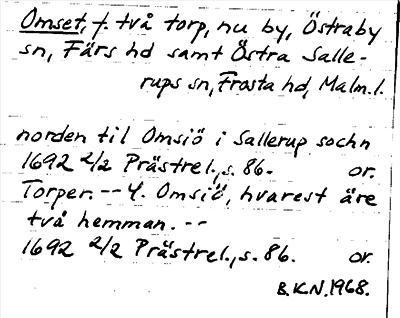 Omset, f. två torp, nu by, Östraby
sn, Färs hd samt Östra Salle-
rups sn, Frosta hd, Malm.l.
norden til Omsiö i Sallerup sochn
1692 2/2 Prästrel., s. 86. or.
Torper. -- Y. Omsiö, hvarest äre
två hemman. --
1692 2/2 Prästrel., s. 86. or.
B.K.N. 1968.